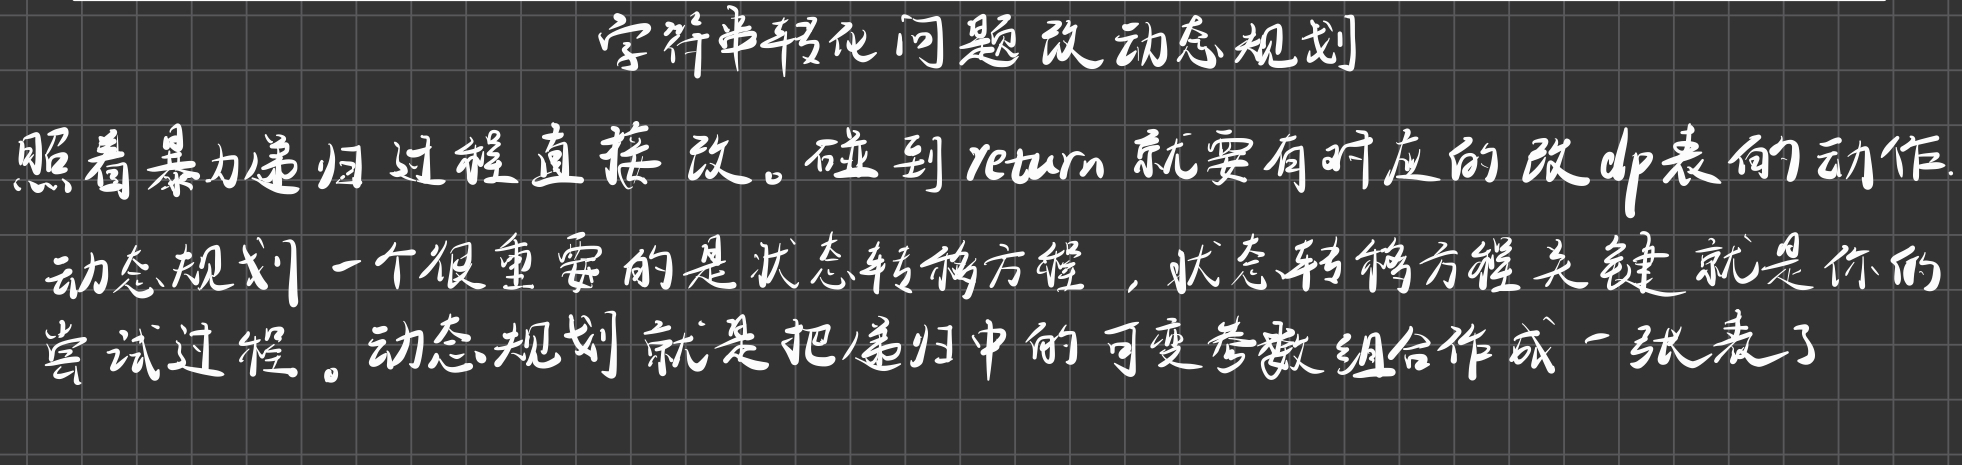 字符串转化问题改动态规划
照着暴力递归过程直接改。碰到return就要有对应的改dp表的动作.
动态规划一个很重要的是状态转移方程，状态转移方程关键就是你的
尝试过程。动态规划就是把递归中的可变参数组合作成一张表了